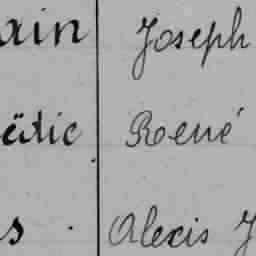 ain Joseph
ëdic René
s . Alexis J